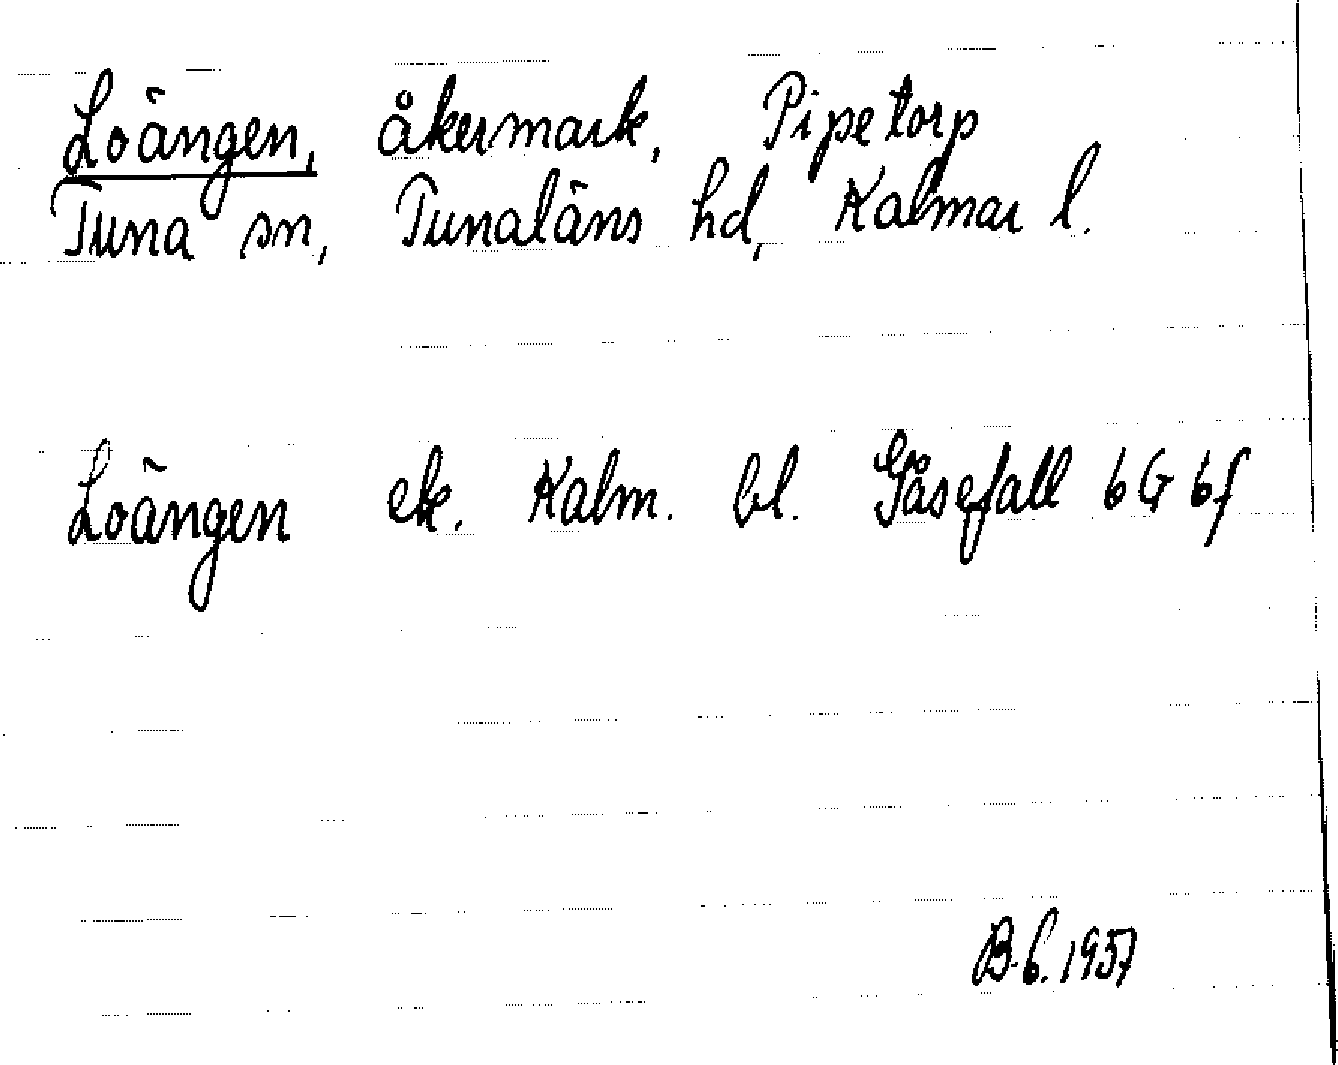 Loängen, åkermark, Pipetorp
Tuna sn, Tunaläns hd, Kalmar l.
Loängen ek. Kalm. bl. Gåsefall 6G 6f
B.G. 1957